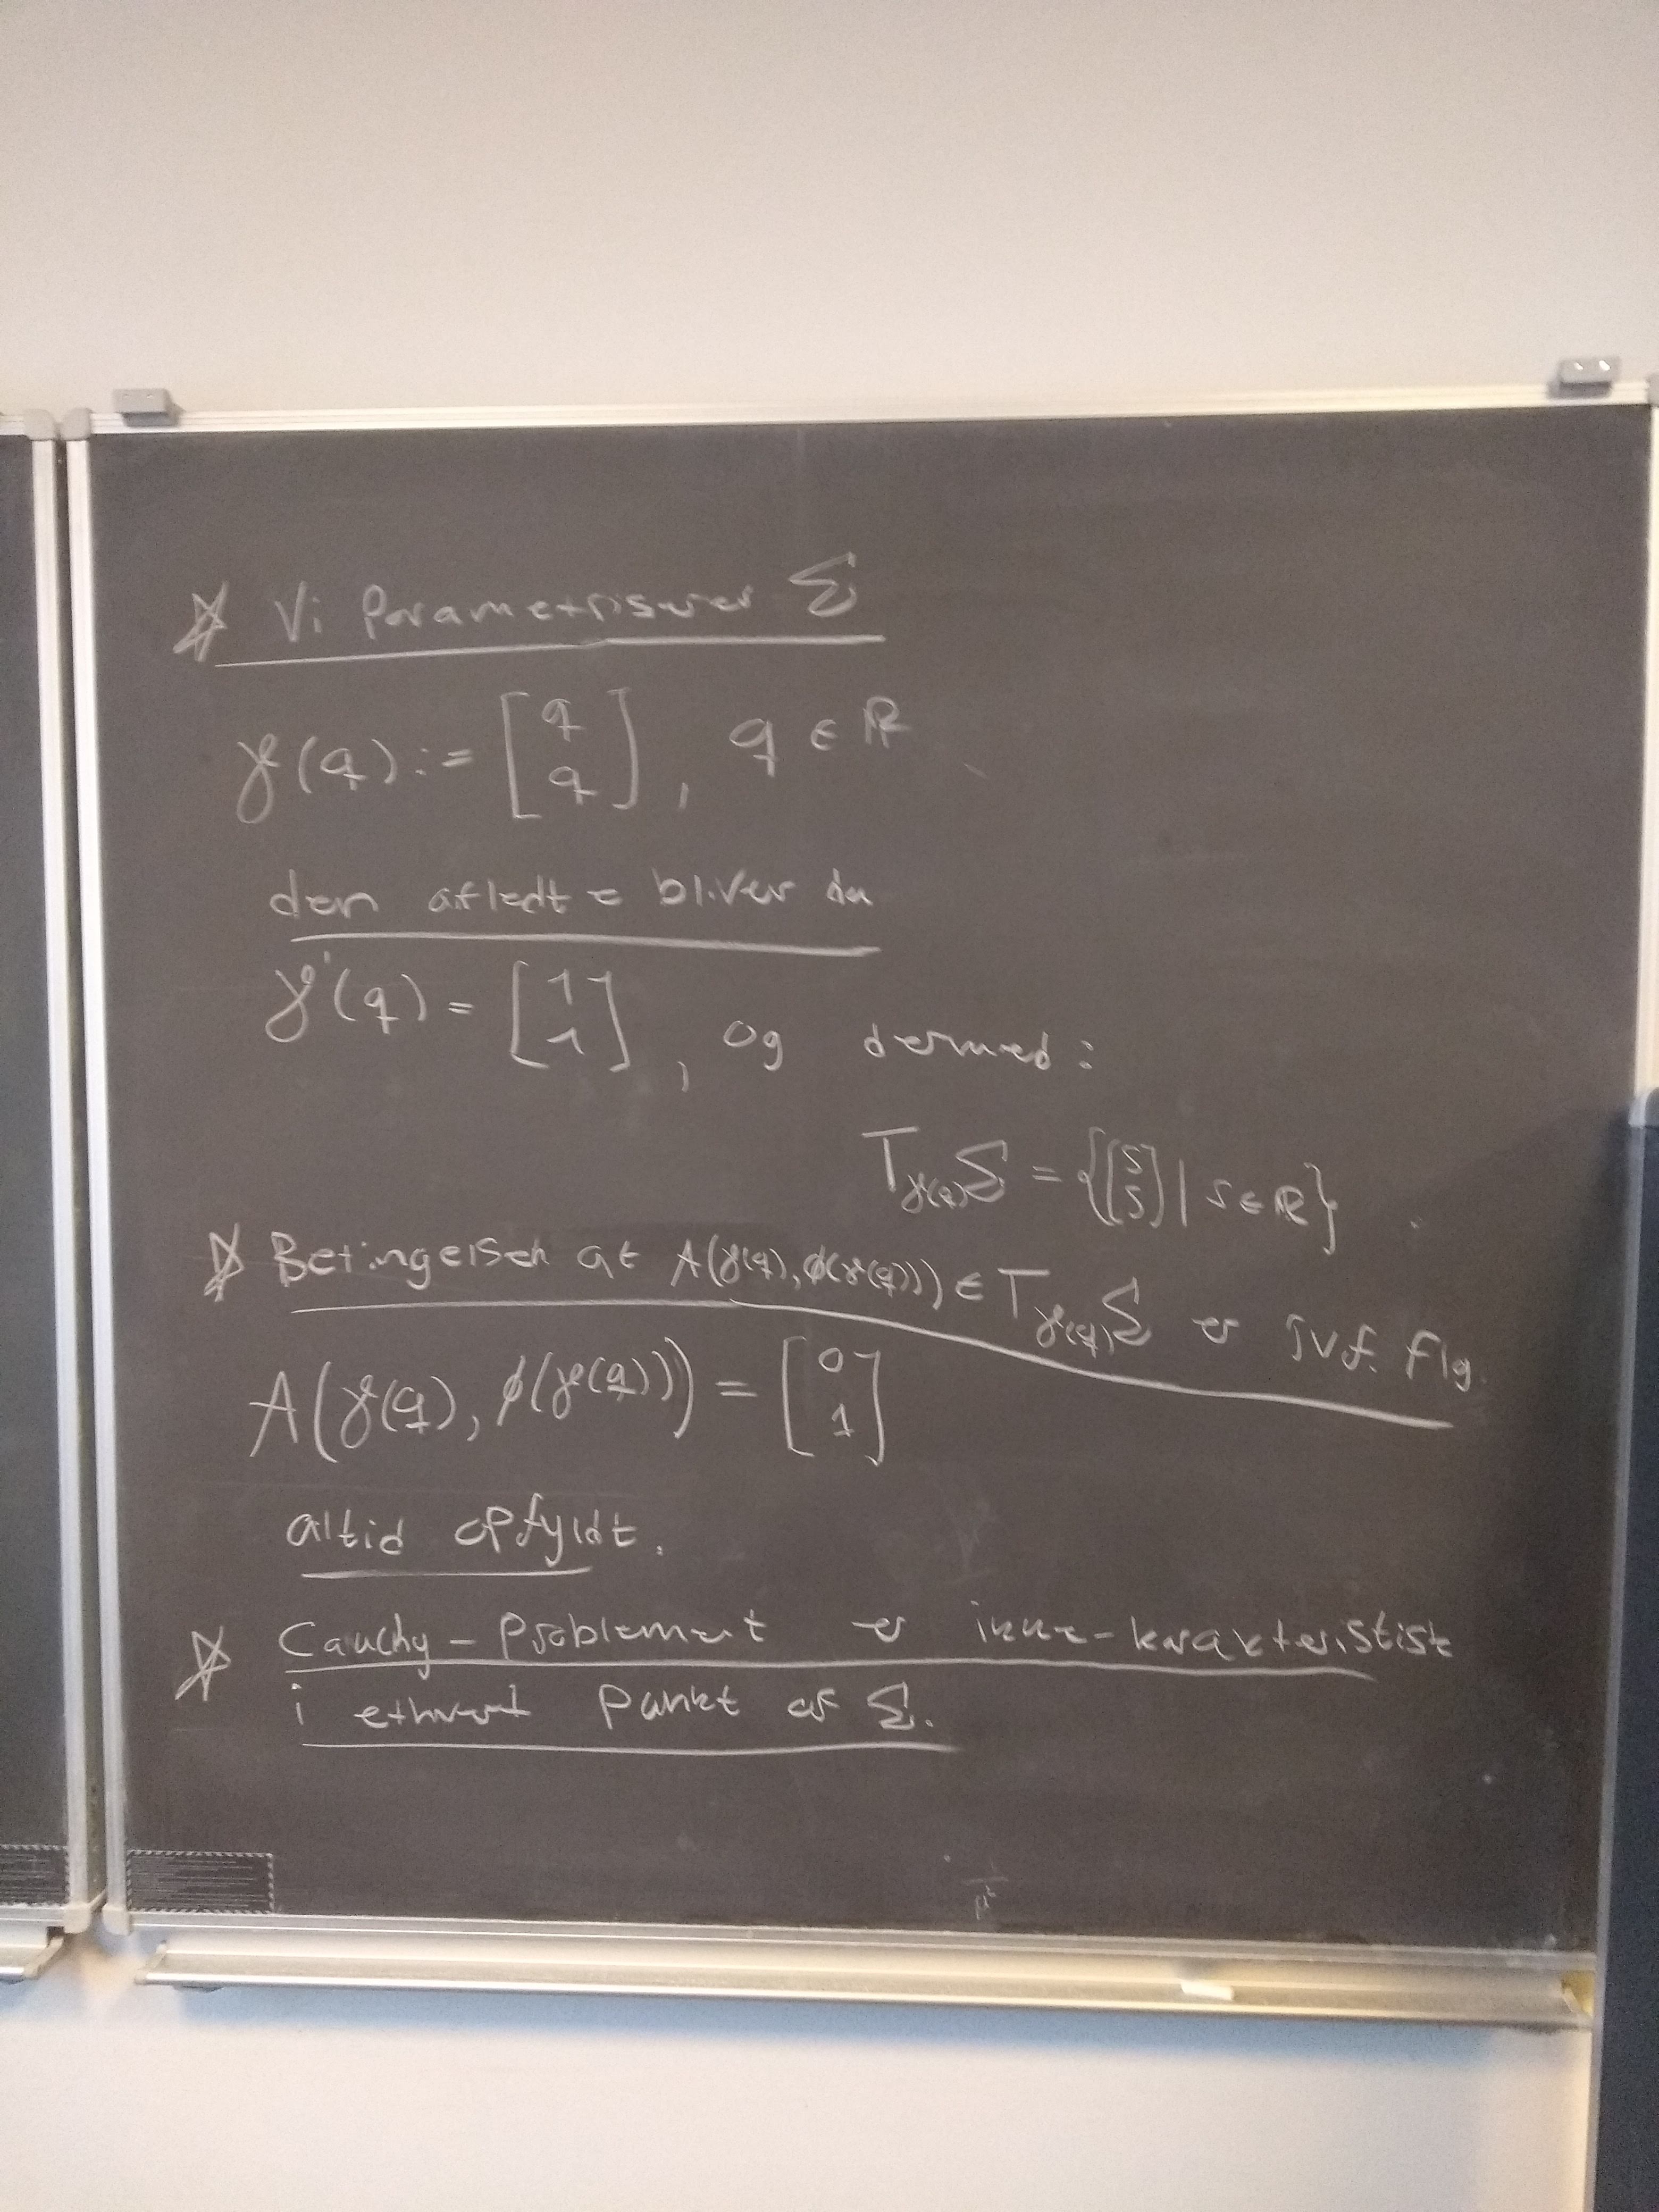 ☆ Vi Parametriserer Σ
γ(q) := [q q], q ∈ ℝ
den afledte bliver da
γ'(q) = [1 1], og dermed:
T_γ(q)Σ = {[s s] | s ∈ ℝ}
☆ Betingelsen at A(γ(q), ϕ(γ(q))) ∈ T_γ(q)Σ er jvf. flg.
A(γ(q), ϕ(γ(q))) = [0 1]
altid opfyldt.
☆ Cauchy-Problemet er ikke-karakteristisk
i ethvert Punkt af Σ.